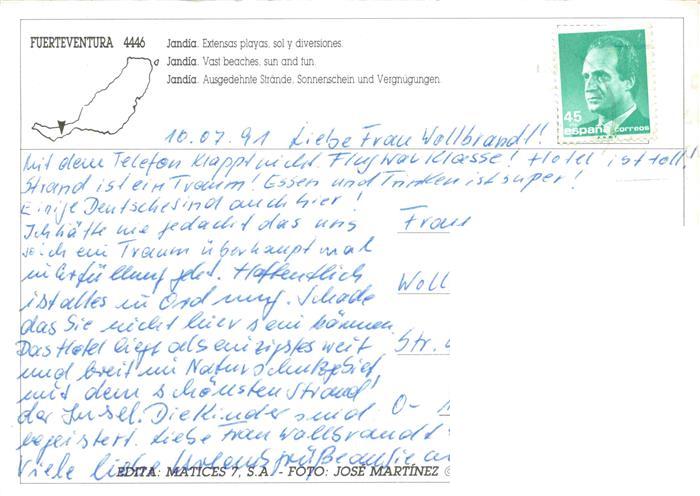 FUERTEVENTURA 4446
Jandía. Extensas playas, sol y diversiones.
Jandía. Vast beaches, sun and fun.
Jandía. Ausgedehnte Strände, Sonnenschein und Vergnügungen.
45
españa correos
10.07.91 Liebe Frau Wollbrandt!
Mit dem Telefon klappt nicht. Flug war klasse! Hotel ist toll!
Strand ist ein Traum! Essen und Trinken ist super!
Einige Deutsche sind auch hier!
Ich hätte nie gedacht das uns
solch ein Traum überhaupt mal
in Erfüllung geht. Hoffentlich
ist alles in Ordnung. Schade
das Sie nicht hier sein können.
Das Hotel liegt als einzigstes weit
und breit im Naturschutzgebiet
mit dem schönsten Strand
der Insel. Die Kinder sind
begeistert. Liebe Frau Wollbrandt
Viele liebe Urlaubsgrüße an Sie
Frau
Woll
Str.
O-
EDITA: MATICES 7, S.A. - FOTO: JOSÉ MARTÍNEZ ©